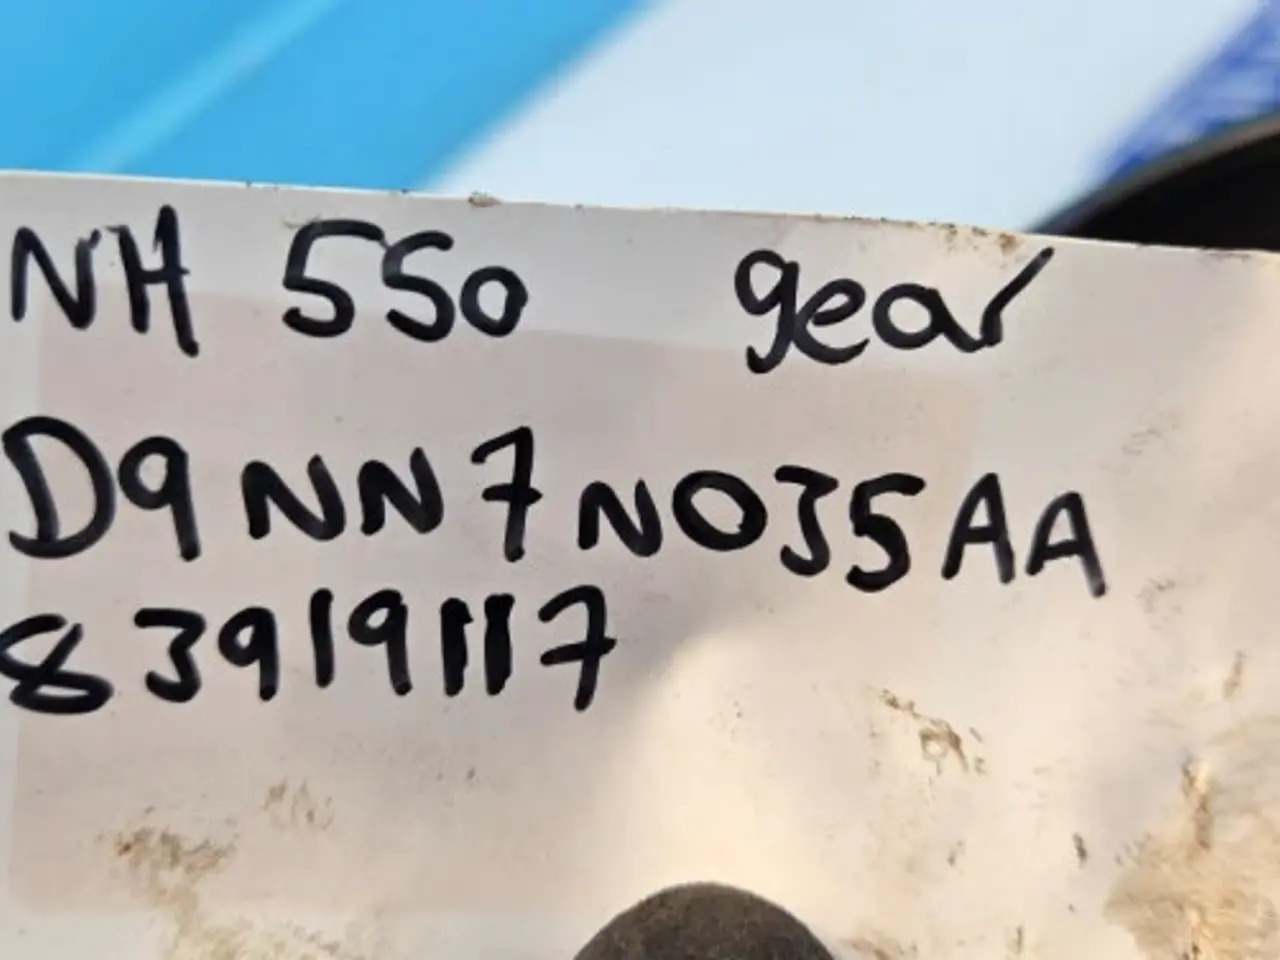 NH 550 gear
D9NN7N035AA
83919117